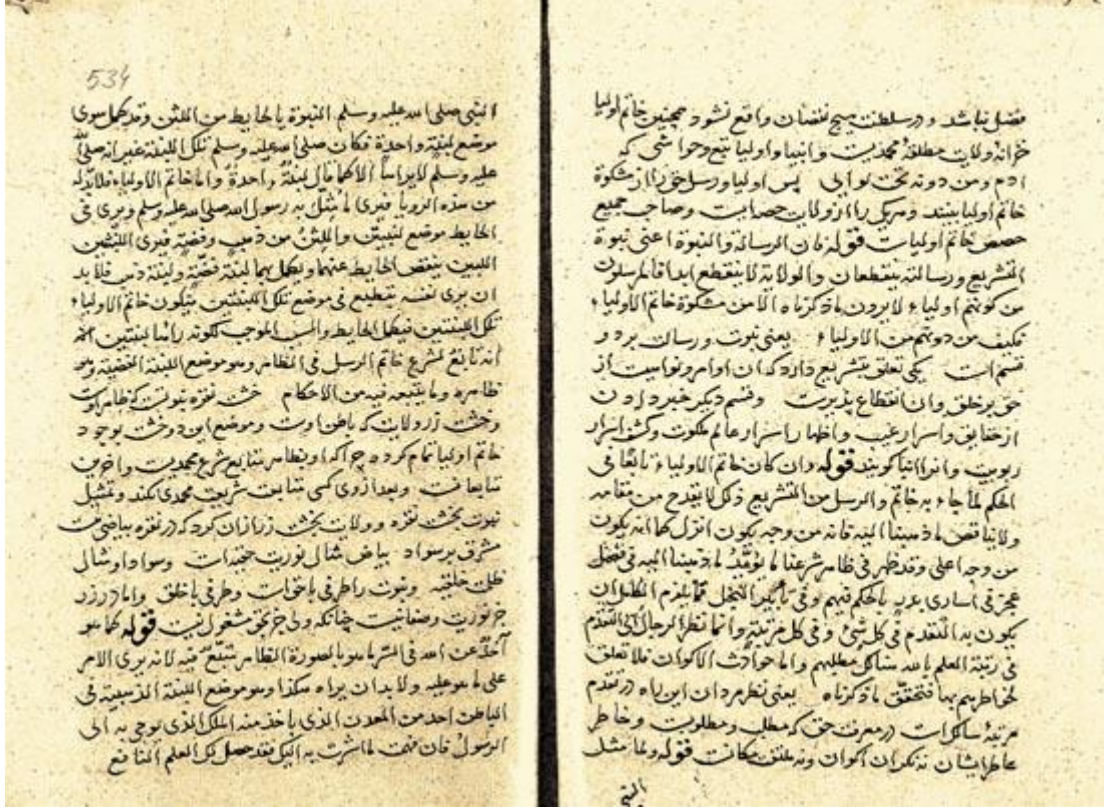 فضل نباشد و در سلطنت هیچ نقصان واقع نشود همچنین خاتم اولیا
ولایت مطلقهٔ محمدیست و انبیا و اولیا تبع و حواشی که
ادم ومن دونه تحت لوایی پس اولیا و رسل حق را از مشکوة
خاتم اولیا بینند و هر یکی را از ولایت حصه ایست و صاحب جمیع
حصص خاتم اولیاست قوله فان الرسالة والنبوة اعنی نبوة
التشریع ورسالته ینقطعان والولایة لا ینقطع ابدا فالمرسلون
من کونهم اولیاء لایرون ماذکرناه الا من مشکوة خاتم الاولیاء
فکیف من دونهم من الاولیاء یعنی نبوت و رسالت بر دو
قسم است یکی تعلق بتشریع دارد که ان اوامر و نواهیست از
حق بر خلق و ان انقطاع پذیرست و قسم دیگر خبر دادن
از حقایق و اسرار غیب و اظهار اسرار عالم ملکوت و کشف اسرار
ربوبیت و انرا انبا کویند قوله وان کان خاتم الاولیاء تابعًا فی
الحکم لما جاء به خاتم الرسل من التشریع فذلک لا یقدح من مقامه
ولایناقض ما ذهبنا الیه فانه من وجه یکون انزل کما انه یکون
من وجه اعلی وقد ظهر فی ظاهر شرعنا ما یؤیّد ما ذهبنا الیه فی فضل
عمر فی اساری بدر بالحکم فیهم وفی تأبیر النخل فما یلزم الکامل ان
یکون له التقدم فی کل شئ وفی کل مرتبة وانما نظر الرجال الی التقدم
فی رتبة العلم بالله هنالک مطلبهم واما حوادث الاکوان فلا تعلق
لخواطرهم بها فتحقّق ماذکرناه یعنی نظر مردان این راه در تقدم
مرتبهٔ سالکانست در معرفت حق که مطلب و مطلوبست و خاطر
عاطر ایشان نه نکران اکوان ونه ملتفت مکانست قوله ولما مثل
النبی
534
النبی صلی الله علیه وسلم النبوة بالحایط من اللبن وقد کمل سوی
موضع لبنة واحدة فکان صلی الله علیه وسلم تلک اللبنة غیر انه صلی الله
علیه وسلم لایراها الا کما قال لبنةً واحدةً واما خاتم الاولیاء فلابد له
من هذه الرویا فیری ما مثّل به رسول الله صلی الله علیه وسلم ویری فی
الحایط موضع لبنتین واللبن من ذهب وفضة فیری اللبنتین
اللتین ینقص الحایط عنهما ویکمل بهما لبنة فضّة ولبنة ذهب فلابد
ان یری نفسه ینطبع فی موضع تلک اللبنتین فیکون خاتم الاولیاء
تلک اللبنتین فیکمل الحایط والسبب الموجب لکونه راها لبنتین انه
انه تابعٌ لشرع خاتم الرسل فی الظاهر وهو موضع اللبنة الفضیة وهو
ظاهره وما یتبعه فیه من الاحکام خشت نقره نبوتست که ظاهر اوست
وخشت زر ولایت که باطن اوست وموضع این دو خشت بوجود
خاتم اولیا تمام کردد چرا که او بظاهر متابع شرع محمدیست و اخرین
متابعانست و بعد از وی کسی متابعت شریعت محمدی نکند و تمثیل
نبوت بخشت نقره و ولایت بخشت زر از ان کرد که در نقره بیاضیست
مشرف بر سواد بیاض مثال نوریت حقیّه است وسواد او مثال
ظلمت خلقیه ونبوت را طرفی با حقست وطرفی با خلق واما در زر
جز نوریت وصفا نیست چنانکه ولی جز بحق مشغول نیست قوله کما هو
آخذٌ عن الله فی السّر ما هو بالصورة الظاهرة متبّع فیه لانه یری الامر
علی ما هو علیه ولابد ان یراه هکذا وهو موضع اللبنة الذهبیة فی
الباطن اخذ من المعدن الذی یاخذ منه الملک الذی یوحی به الی
الرسول فان فهمت ما اشرت به الیک فقد حصل لک العلم النافع